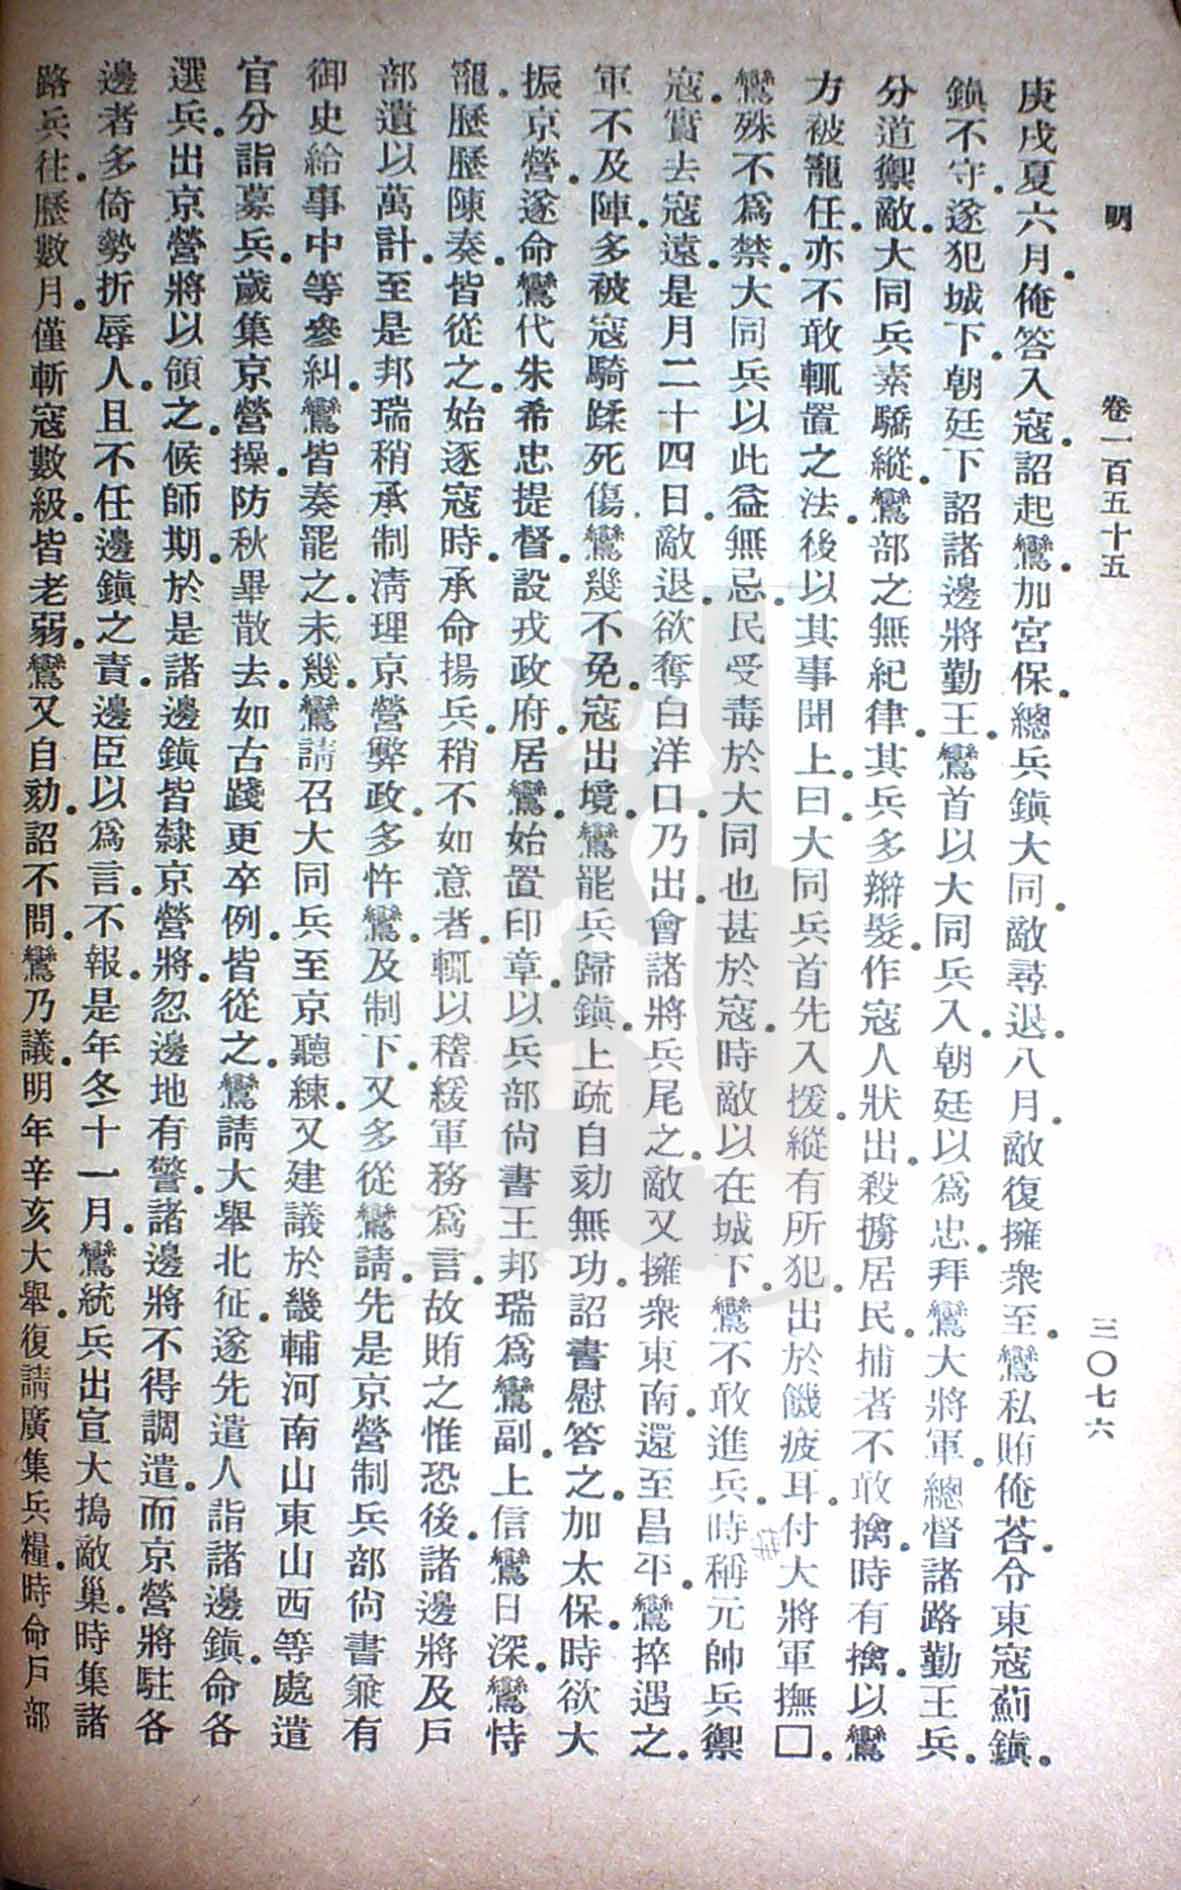 明　卷一百五十五　三〇七六
庚戌夏六月。俺答入寇。詔起鸞。加宮保。總兵鎮大同。敵尋退。八月。敵復擁衆至。鸞私賄俺荅。令東寇薊鎮。
鎮不守。遂犯城下。朝廷下詔諸邊將勤王。鸞首以大同兵入。朝廷以爲忠。拜鸞大將軍。總督諸路勤王兵。
分道禦敵。大同兵素驕縱。鸞部之無紀律。其兵多辮髮。作寇人狀出。殺擄居民。捕者不敢擒。時有擒。以鸞
方被寵任。亦不敢輒置之法。後以其事聞上。曰。大同兵首先入援。縱有所犯。出於饑疲耳。付大將軍撫□。
鸞殊不爲禁。大同兵以此益無忌。民受毒於大同也甚於寇。時敵以在城下。鸞不敢進兵。時稱元帥兵禦
寇。實去寇遠。是月二十四日。敵退。欲奪白洋口。乃出。會諸將兵尾之。敵又擁衆東南。還至昌平。鸞猝遇之。
軍不及陣。多被寇騎蹂死傷。鸞幾不免。寇出境。鸞罷兵歸鎮。上疏自劾無功。詔書慰答之。加太保。時欲大
振京營。遂命鸞代朱希忠提督。設戎政府。居鸞。始置印章。以兵部尙書王邦瑞爲鸞副。上信鸞日深。鸞恃
寵。歷歷陳奏。皆從之。始逐寇時。承命揚兵。稍不如意者。輒以稽緩軍務爲言。故賄之惟恐後。諸邊將及戶
部遺以萬計。至是邦瑞稍承制淸理京營弊政。多忤鸞。及制下。又多從鸞請。先是京營制。兵部尙書兼有
御史給事中等參糾。鸞皆奏罷之。未幾。鸞請召大同兵至京聽練。又建議於畿輔河南山東山西等處遣
官分詣募兵。歲集京營操。防秋畢散去。如古踐更卒例。皆從之。鸞請大舉北征。遂先遣人詣諸邊鎮。命各
選兵。出京營將以領之。候師期。於是諸邊鎮皆隸京營將。忽邊地有警。諸邊將不得調遣。而京營將駐各
邊者多倚勢折辱人。且不任邊鎮之責。邊臣以爲言。不報。是年冬十一月。鸞統兵出宣大搗敵巢。時集諸
路兵往。歷數月。僅斬寇數級。皆老弱。鸞又自劾。詔不問。鸞乃議。明年辛亥大舉。復請廣集兵糧。時命戶部